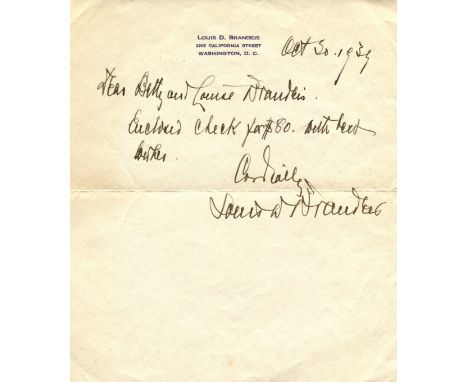 LOUIS D. BRANDEIS
2205 CALIFORNIA STREET
WASHINGTON, D. C.
Oct 30. 1939
Dear Betty and Louise Brandeis.
Enclosed check for $80. with best
wishes.
Cordially
Louis D Brandeis